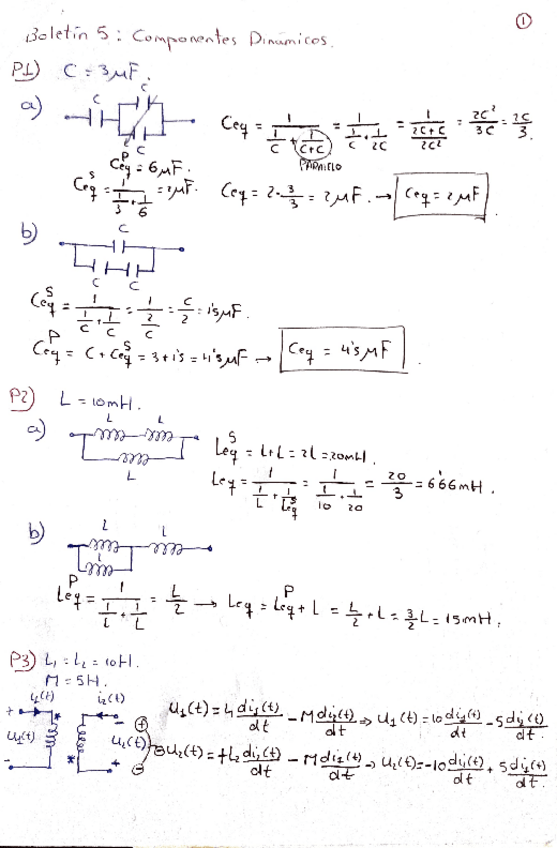 ①
Boletín 5: Componentes Dinámicos.
P1) C = 3μF.
a) C C C
Ceq = 1/(1/C + 1/(C+C)) = 1/(1/C + 1/2C) = 1/((2C+C)/2C²) = 2C²/3C = 2C/3.
PARALELO
Ceq^P = 6μF.
Ceq^S = 1/(1/3 + 1/6) = 2μF. Ceq = 2·3/3 = 2μF. → Ceq = 2μF
b) C C C
Ceq^S = 1/(1/C + 1/C) = 1/(2/C) = C/2 = 1'5μF.
Ceq^P = C + Ceq^S = 3 + 1'5 = 4'5μF → Ceq = 4'5μF.
P2) L = 10mH.
a) L L L
Leq^S = L+L = 2L = 20mH.
Leq = 1/(1/L + 1/Leq^S) = 1/(1/10 + 1/20) = 20/3 = 6'66mH.
b) L L L
Leq^P = 1/(1/L + 1/L) = L/2 → Leq = Leq^P + L = L/2 + L = 3/2 L = 15mH.
P3) L₁ = L₂ = 10H.
M = 5H.
i₁(t) i₂(t)
+ * − ⊕
u₁(t) u₂(t)
− * + ⊖
u₁(t) = L₁ di₁(t)/dt − M di₂(t)/dt → u₁(t) = 10 di₁(t)/dt − 5 di₂(t)/dt.
⊖u₂(t) = +L₂ di₂(t)/dt − M di₁(t)/dt → u₂(t) = −10 di₂(t)/dt + 5 di₁(t)/dt.